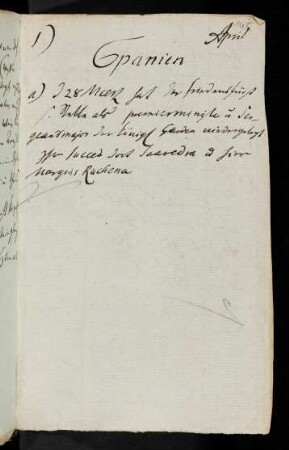 April
1)
Spanien
a) d 28 Merz hat der Friedensfürst
s. Stelle als premierministe u Ser-
geantmajor der Königl Garden niedergelegt
Ihm succed dort Saavedra u hier
Marquis Ruchena